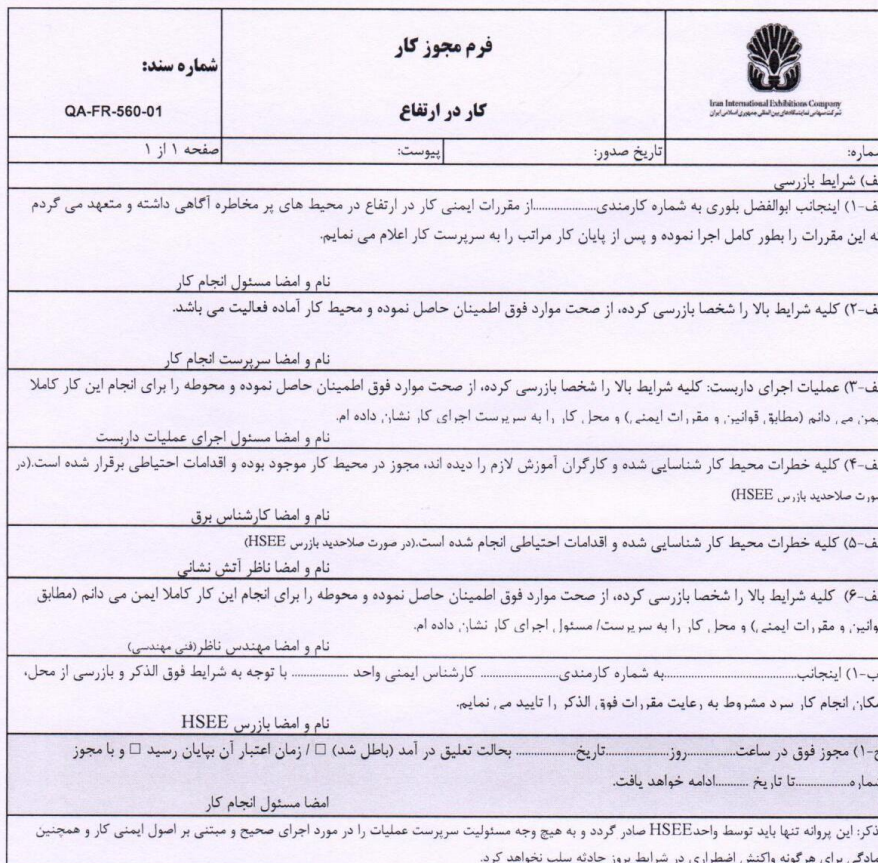 Iran International Exhibitions Company
شرکت سهامی نمایشگاههای بین المللی جمهوری اسلامی ایران
فرم مجوز کار
کار در ارتفاع
شماره سند:
QA-FR-560-01
شماره:
تاریخ صدور:
پیوست:
صفحه ۱ از ۱
ف) شرایط بازرسی
ف-۱) اینجانب ابوالفضل بلوری به شماره کارمندی...................از مقررات ایمنی کار در ارتفاع در محیط های پر مخاطره آگاهی داشته و متعهد می گردم
که این مقررات را بطور کامل اجرا نموده و پس از پایان کار مراتب را به سرپرست کار اعلام می نمایم.
نام و امضا مسئول انجام کار
ف-۲) کلیه شرایط بالا را شخصا بازرسی کرده، از صحت موارد فوق اطمینان حاصل نموده و محیط کار آماده فعالیت می باشد.
نام و امضا سرپرست انجام کار
ف-۳) عملیات اجرای داربست: کلیه شرایط بالا را شخصا بازرسی کرده، از صحت موارد فوق اطمینان حاصل نموده و محوطه را برای انجام این کار کاملا
یمن می دانم (مطابق قوانین و مقررات ایمنی) و محل کار را به سرپرست اجرای کار نشان داده ام.
نام و امضا مسئول اجرای عملیات داربست
ف-۴) کلیه خطرات محیط کار شناسایی شده و کارگران آموزش لازم را دیده اند، مجوز در محیط کار موجود بوده و اقدامات احتیاطی برقرار شده است.(در
صورت صلاحدید بازرس HSEE)
نام و امضا کارشناس برق
ف-۵) کلیه خطرات محیط کار شناسایی شده و اقدامات احتیاطی انجام شده است.(در صورت صلاحدید بازرس HSEE)
نام و امضا ناظر آتش نشانی
ف-۶) کلیه شرایط بالا را شخصا بازرسی کرده، از صحت موارد فوق اطمینان حاصل نموده و محوطه را برای انجام این کار کاملا ایمن می دانم (مطابق
قوانین و مقررات ایمنی) و محل کار را به سرپرست/ مسئول اجرای کار نشان داده ام.
نام و امضا مهندس ناظر(فنی مهندسی)
ب-۱) اینجانب..................................به شماره کارمندی.................... کارشناس ایمنی واحد ............... با توجه به شرایط فوق الذکر و بازرسی از محل،
مکان انجام کار سرد مشروط به رعایت مقررات فوق الذکر را تایید می نمایم.
نام و امضا بازرس HSEE
ج-۱) مجوز فوق در ساعت..............روز................تاریخ............... بحالت تعلیق در آمد (باطل شد) □ / زمان اعتبار آن بپایان رسید □ و با مجوز
شماره................تا تاریخ ..........ادامه خواهد یافت.
امضا مسئول انجام کار
ذکر: این پروانه تنها باید توسط واحدHSEE صادر گردد و به هیچ وجه مسئولیت سرپرست عملیات را در مورد اجرای صحیح و مبتنی بر اصول ایمنی کار و همچنین
آمادگی برای هرگونه واکنش اضطراری در شرایط بروز حادثه سلب نخواهد کرد.